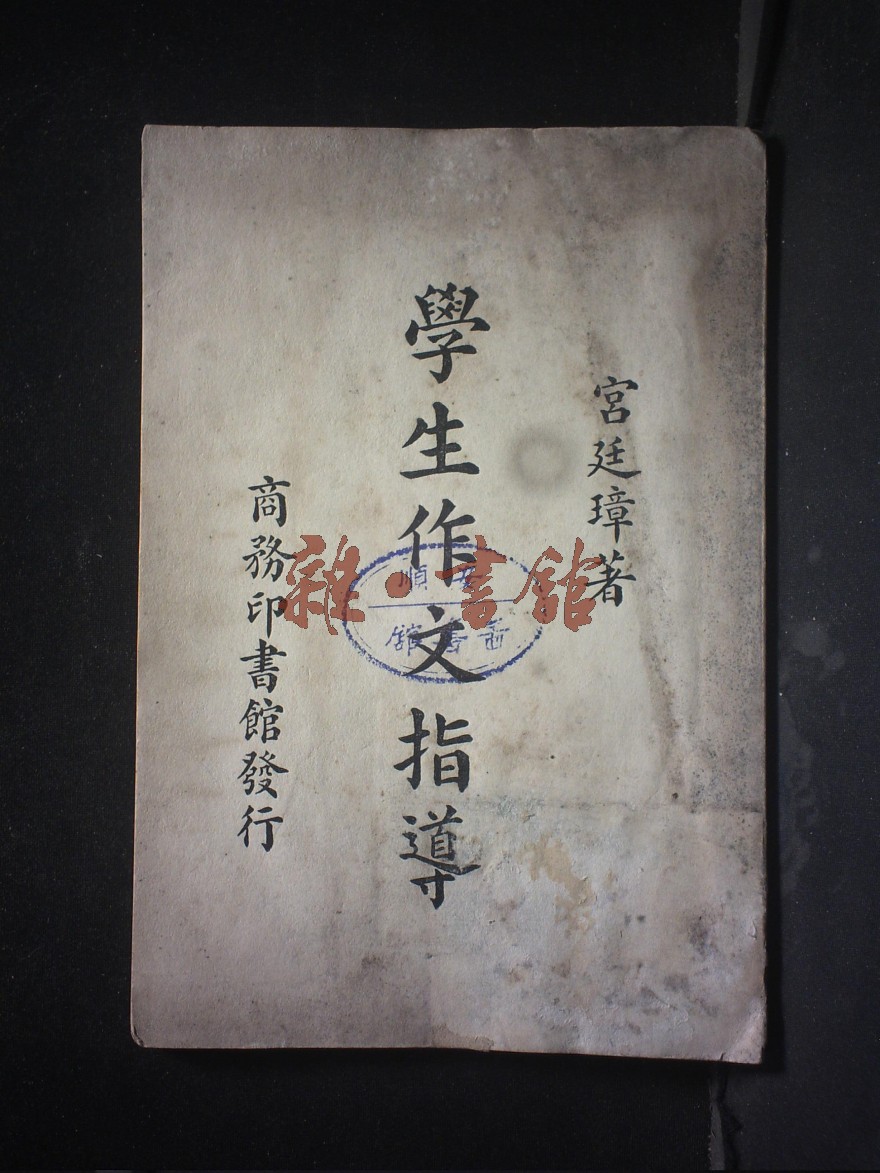 宮廷璋著
學生作文指導
商務印書館發行
雜·書館
安順
圖書館